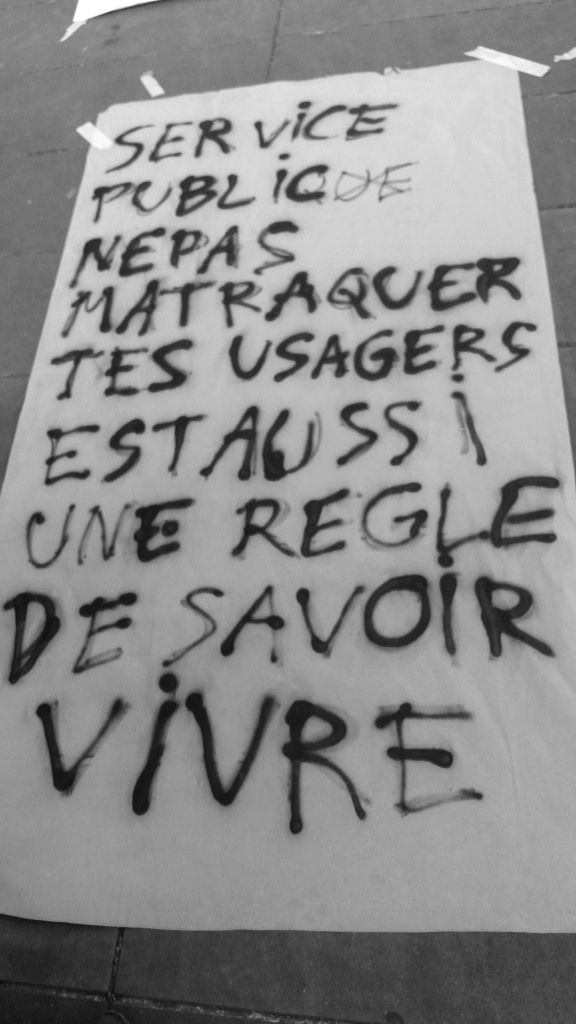 SERVICE
PUBLIQUE
NE PAS
MATRAQUER
TES USAGERS
EST AUSSI
UNE REGLE
DE SAVOIR
VIVRE